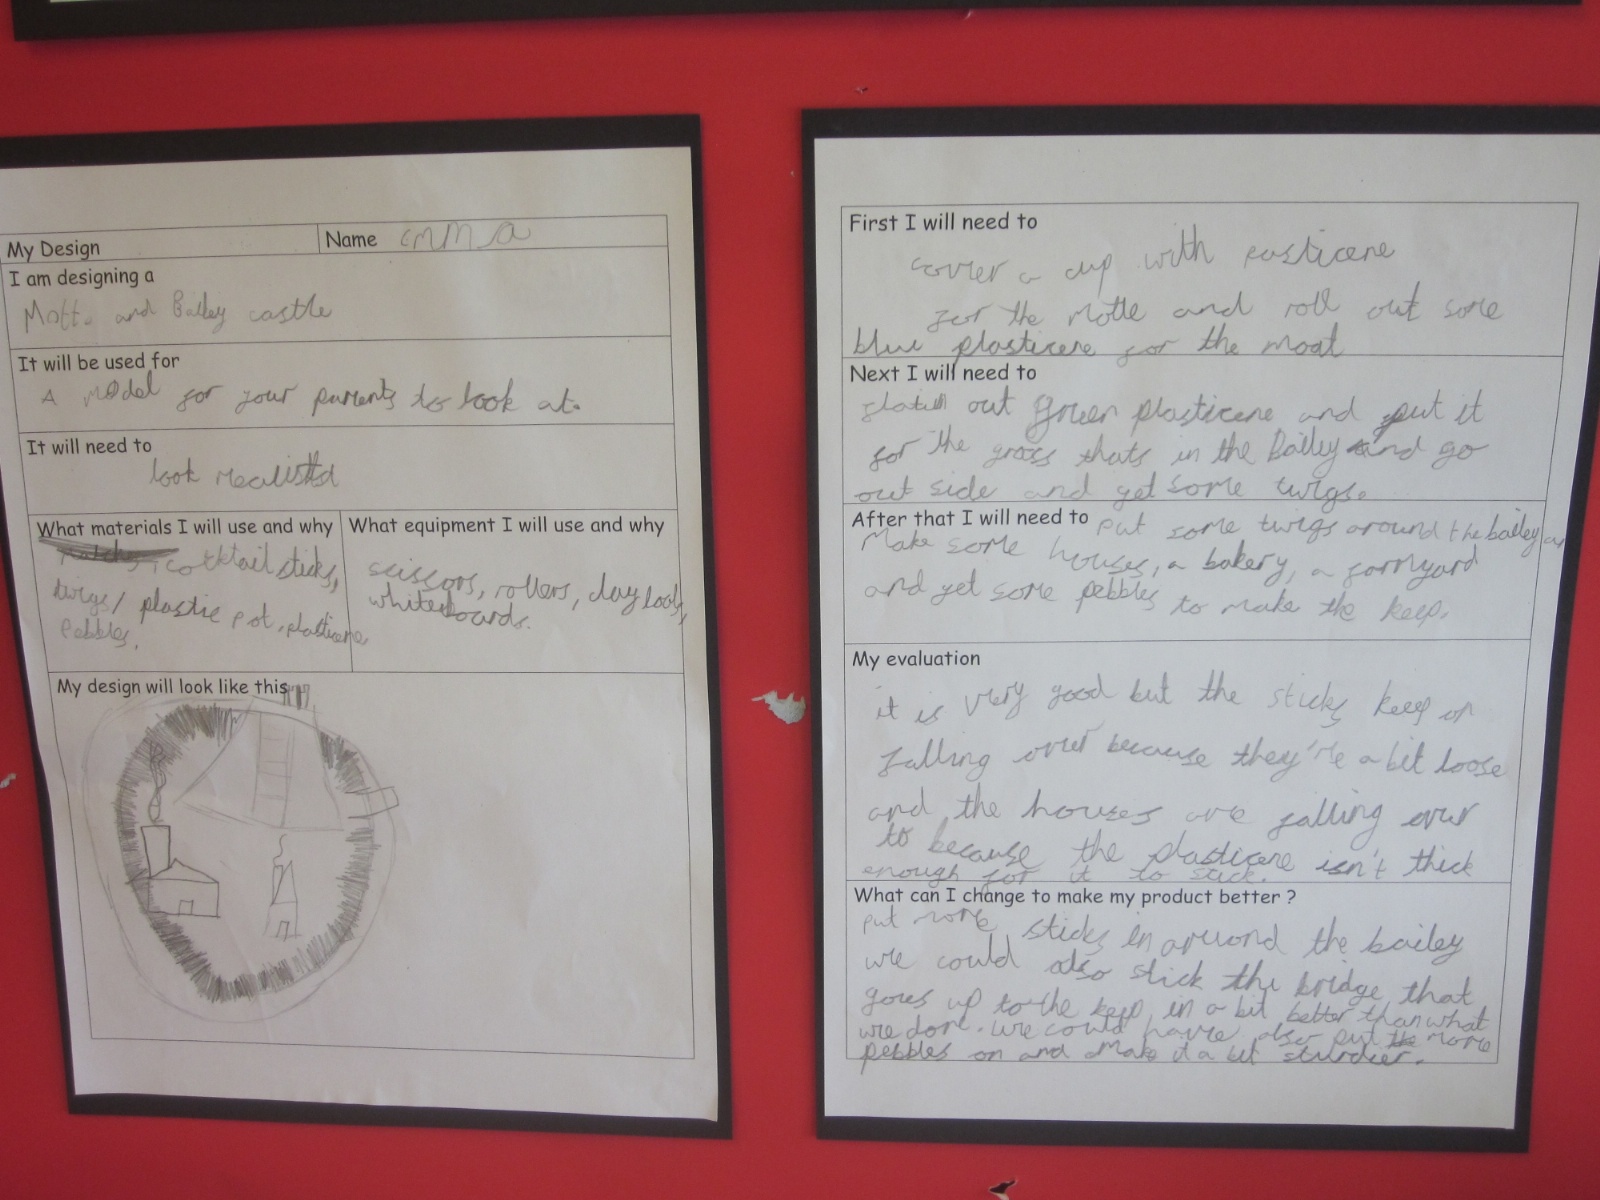 My Design
Name emma
I am designing a
Motte and Bailey castle
It will be used for
A model for your parents to look at.
It will need to
look
What materials I will use and why
cocktail sticks,
twigs, plastic pot, plasticene
Pebbles,
What equipment I will use and why
scissors, rollers, clay tools,
whiteboards.
My design will look like this
First I will need to
cover a cup with pasticene
for the Motte and roll out some
blue plasticene for the moat
Next I will need to
out green plasticene and put it
for the grass thats in the Bailey and go
out side and get some twigs.
After that I will need to put some twigs around the bailey
Make some houses, a bakery, a farmyard
and get some pebbles to make the keep.
My evaluation
it is very good but the sticks keep on
falling over because they're a bit loose
and the houses are falling over
to because the plasticene isn't thick
enough for it to stick.
What can I change to make my product better ?
put more sticks in around the bailey
we could also stick the bridge that
goes up to the keep in a bit better than what
we done. we could have also put more
pebbles on and make it a bit sturdier.